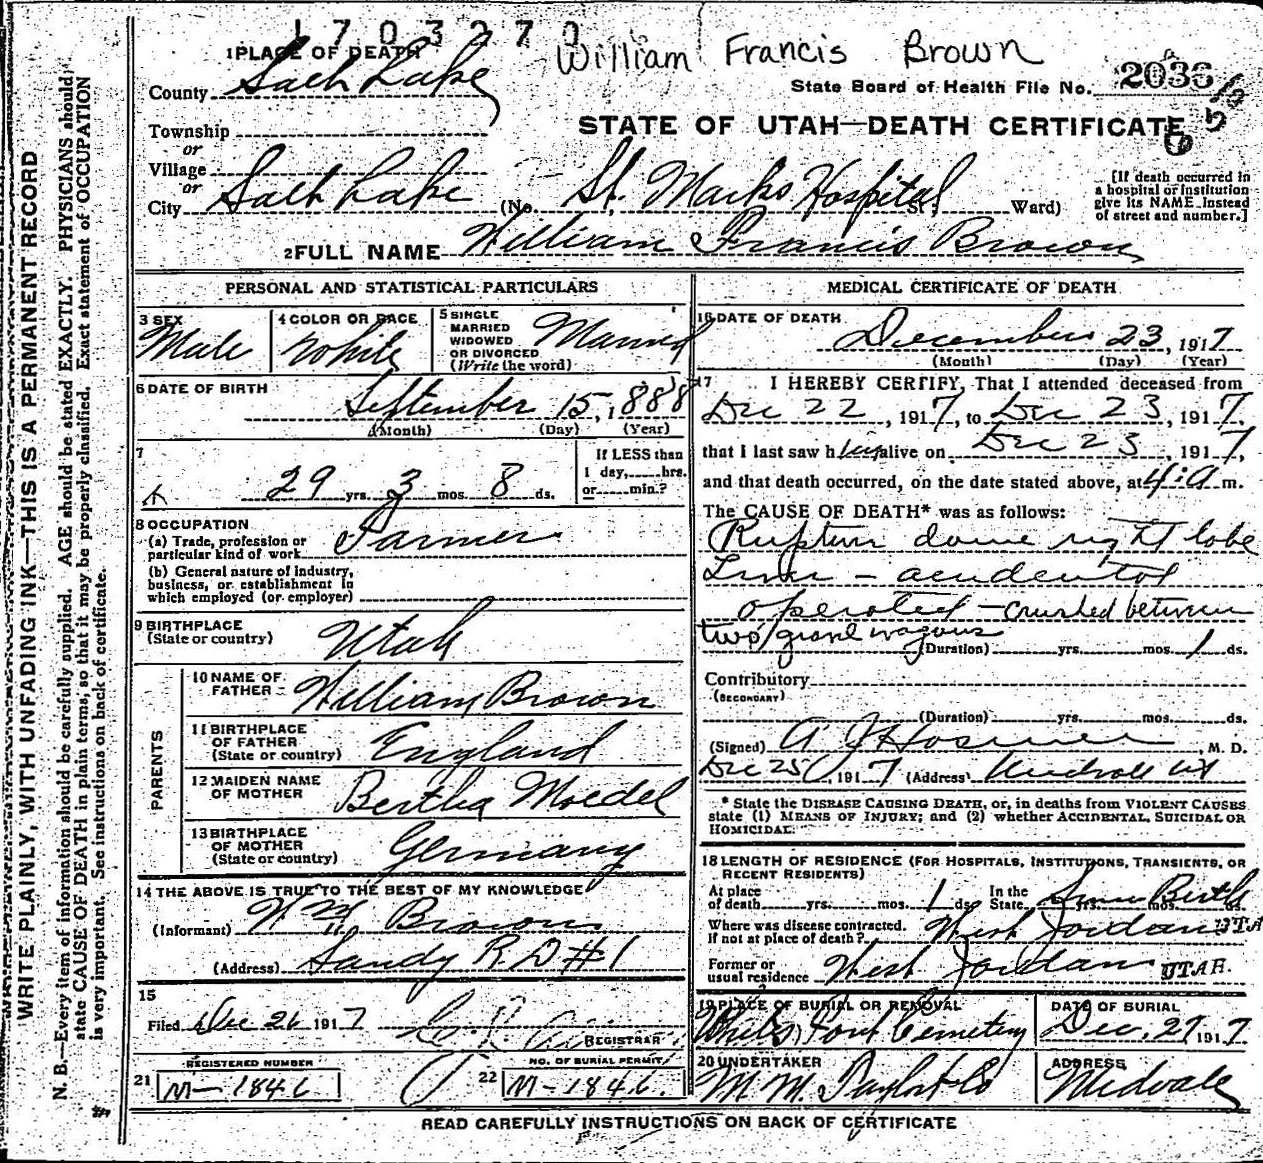 1703270
William Francis Brown
1 PLACE OF DEATH
County Salt Lake
State Board of Health File No. 2036
STATE OF UTAH—DEATH CERTIFICATE
Township
or
Village
or
City Salt Lake (No. St. Marks Hospital St. Ward)
[If death occurred in
a hospital or institution
give its NAME instead
of street and number.]
2 FULL NAME William Francis Brown
PERSONAL AND STATISTICAL PARTICULARS
3 SEX
Male
4 COLOR OR RACE
White
5 SINGLE
MARRIED
WIDOWED
OR DIVORCED
(Write the word)
Married
6 DATE OF BIRTH
September 15, 1888
(Month) (Day) (Year)
7
29 yrs. 3 mos. 8 ds.
If LESS than
1 day, hrs.
or min.?
8 OCCUPATION
(a) Trade, profession or
particular kind of work Farmer
(b) General nature of industry,
business, or establishment in
which employed (or employer)
9 BIRTHPLACE
(State or country) Utah
PARENTS
10 NAME OF
FATHER William Brown
11 BIRTHPLACE
OF FATHER
(State or country) England
12 MAIDEN NAME
OF MOTHER Bertha Moedel
13 BIRTHPLACE
OF MOTHER
(State or country) Germany
14 THE ABOVE IS TRUE TO THE BEST OF MY KNOWLEDGE
(Informant) Wm Brown
(Address) Sandy R D #1
15
Filed Dec 26 1917
REGISTRAR
REGISTERED NUMBER
21 M-1846
NO. OF BURIAL PERMIT
22 M-1846
MEDICAL CERTIFICATE OF DEATH
16 DATE OF DEATH
December 23, 1917
(Month) (Day) (Year)
17 I HEREBY CERTIFY, That I attended deceased from
Dec 22, 1917, to Dec 23, 1917,
that I last saw him alive on Dec 23, 1917,
and that death occurred, on the date stated above, at 4:a m.
The CAUSE OF DEATH* was as follows:
Rupture dome right lobe
Liver - accidental
operated - crushed between
two gravel wagons
(Duration) yrs. mos. 1 ds.
Contributory
(SECONDARY)
(Duration) yrs. mos. ds.
(Signed) A J Hosmer, M. D.
Dec 25, 1917 (Address) Midvale Ut
* State the DISEASE CAUSING DEATH, or, in deaths from VIOLENT CAUSES
state (1) MEANS OF INJURY; and (2) whether ACCIDENTAL, SUICIDAL OR
HOMICIDAL.
18 LENGTH OF RESIDENCE (FOR HOSPITALS, INSTITUTIONS, TRANSIENTS, OR
RECENT RESIDENTS)
At place
of death yrs. mos. 1 ds.
In the
State Since Birth yrs. mos. ds.
Where was disease contracted,
if not at place of death? West Jordan UTA
Former or
usual residence West Jordan UTAH.
19 PLACE OF BURIAL OR REMOVAL
Cemetery
DATE OF BURIAL
Dec. 27 1917
20 UNDERTAKER
ADDRESS
Midvale
READ CAREFULLY INSTRUCTIONS ON BACK OF CERTIFICATE
WRITE PLAINLY, WITH UNFADING INK—THIS IS A PERMANENT RECORD
N. B.—Every item of information should be carefully supplied. AGE should be stated EXACTLY. PHYSICIANS should
state CAUSE OF DEATH in plain terms, so that it may be properly classified. Exact statement of OCCUPATION
is very important. See instructions on back of certificate.